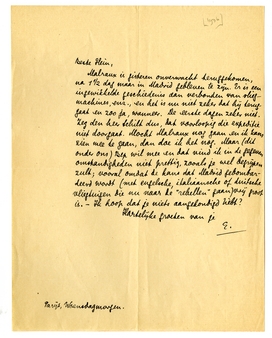 [1936]
Beste Hein,
Malraux is gisteren onverwacht teruggekomen,
na 1½ dag maar in Madrid gebleven te zijn. Er is een
ingewikkelde geschiedenis aan verbonden van vlieg-
machines, enz., en het is nu niet zeker dat hij terug-
gaat en zoo ja, wanneer. De eerste dagen zeker niet.
Zeg den heer Schilt dus, dat voorloopig die expeditie
niet doorgaat. Mocht Malraux nog gaan en ik kan
mee te gaan, dan doe ik het nog. Maar (dit
onder ons) Bep wil mee en dat vind ik in de gegeven
omstandigheden niet prettig, zooals je wel begrijpen
zult; vooral omdat de kans dat Madrid gebombar-
deerd wordt (met engelsche, italiaansche of duitsche
vliegtuigen die nu naar de "rebellen" gaan) vrij groot
is. – Ik hoop dat je niets aangekondigd hebt?
Hartelijke groeten van je
E.
Parijs, Woensdagmorgen.